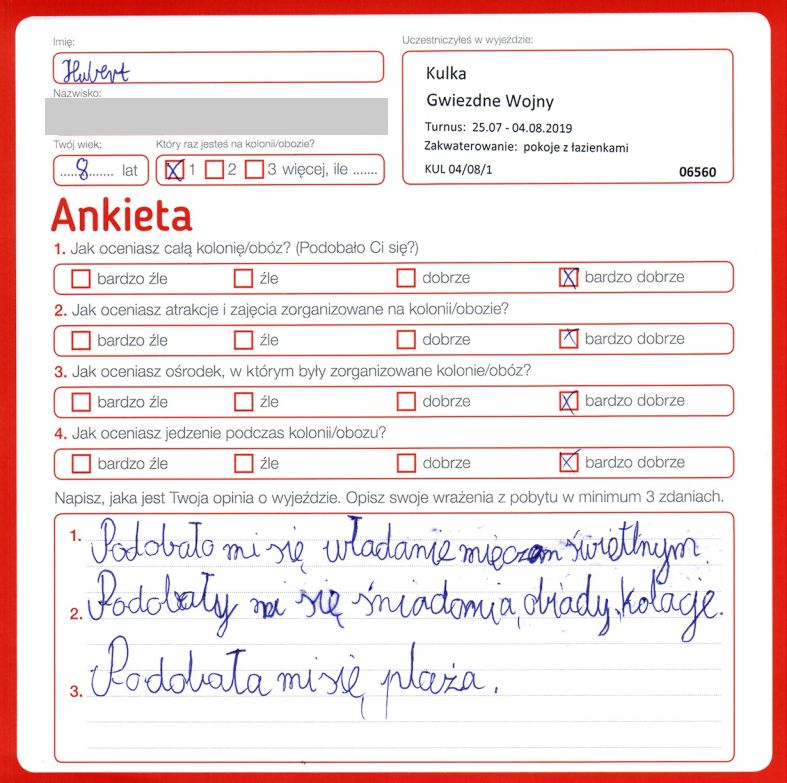 Imię:
Hubert
Nazwisko:
Twój wiek:
8 lat
Który raz jesteś na kolonii/obozie?
1 2 3 więcej, ile .......
Uczestniczyłeś w wyjeździe:
Kulka
Gwiezdne Wojny
Turnus: 25.07 - 04.08.2019
Zakwaterowanie: pokoje z łazienkami
KUL 04/08/1 06560
Ankieta
1. Jak oceniasz całą kolonię/obóz? (Podobało Ci się?)
bardzo źle źle dobrze bardzo dobrze
2. Jak oceniasz atrakcje i zajęcia zorganizowane na kolonii/obozie?
bardzo źle źle dobrze bardzo dobrze
3. Jak oceniasz ośrodek, w którym były zorganizowane kolonie/obóz?
bardzo źle źle dobrze bardzo dobrze
4. Jak oceniasz jedzenie podczas kolonii/obozu?
bardzo źle źle dobrze bardzo dobrze
Napisz, jaka jest Twoja opinia o wyjeździe. Opisz swoje wrażenia z pobytu w minimum 3 zdaniach.
1. Podobało mi się władanie mieczem świetlnym.
2. Podobały mi się śniadania, obiady, kolacje.
3. Podobała mi się plaża.